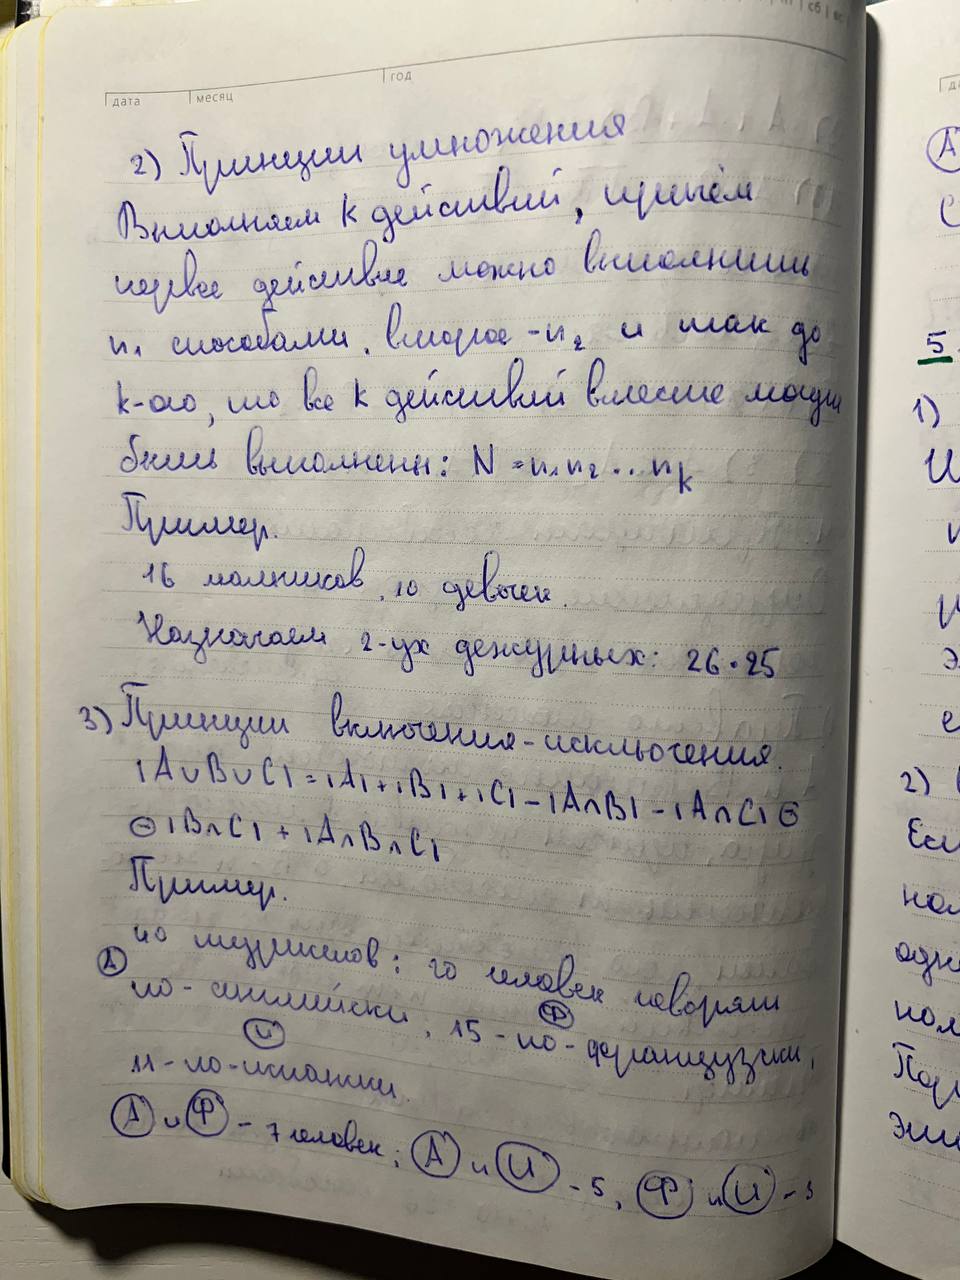 дата месяц год
2) Принцип умножения
Выполняем k действий, причём
первое действие можно выполнить
n₁ способами, второе - n₂ и так до
k-ого, то все k действий вместе могут
быть выполнены: N = n₁ n₂ ... nk
Пример.
16 мальчиков, 10 девочек.
Назначаем 2-ух дежурных: 26 • 25
3) Принцип включения-исключения.
|A∪B∪C| = |A| + |B| + |C| - |A∩B| - |A∩C| ⊖
⊖ |B∩C| + |A∩B∩C|
Пример.
40 туристов: 20 человек говорят
А
по-английски, 15 - по-французски,
Ф
И
11 - по-испански.
А и Ф - 7 человек; А и И - 5, Ф и И - 3
А
5
1)
2)
Если